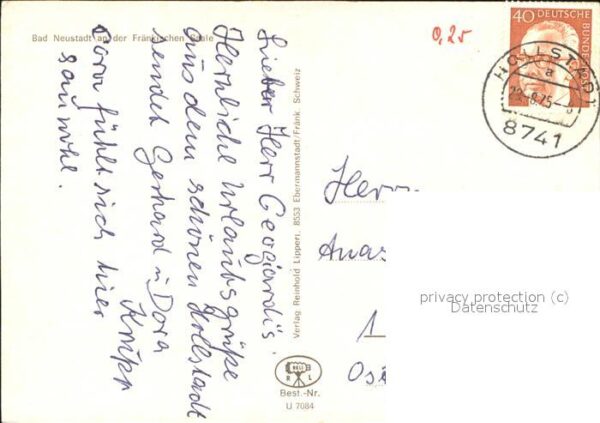 Bad Neustadt an der Fränkischen Saale
Lieber Herr Geogiardis.
Herzliche Urlaubsgrüße
aus dem schönen Hollstadt
sendet Gerhard u. Dora
Krupp
Dora fühlt sich hier
sauwohl.
Verlag Reinhold Lippert, 8553 Ebermannstadt/Fränk. Schweiz
RELI
R L
Best.-Nr.
U 7084
0,25
40 DEUTSCHE BUNDESPOST
HOLLSTADT
a
22.-8.75
8741
Herrn
Anas
1
privacy protection (c)
Datenschutz